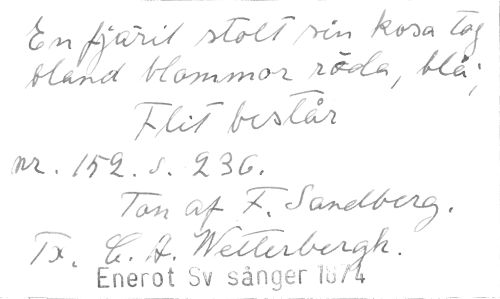 En fjäril stolt sin kosa tag
bland blommor röda, blå;
Flit består
nr. 152. s. 236.
Ton af F. Sandberg.
Tx. C. A. Wetterbergh.
Enerot Sv sånger 1874